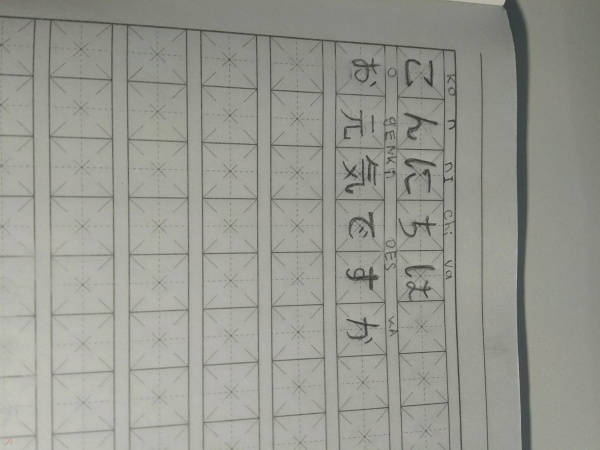 ko n nI chi va
こんにちは
O GENKI DES KA
お元気ですか